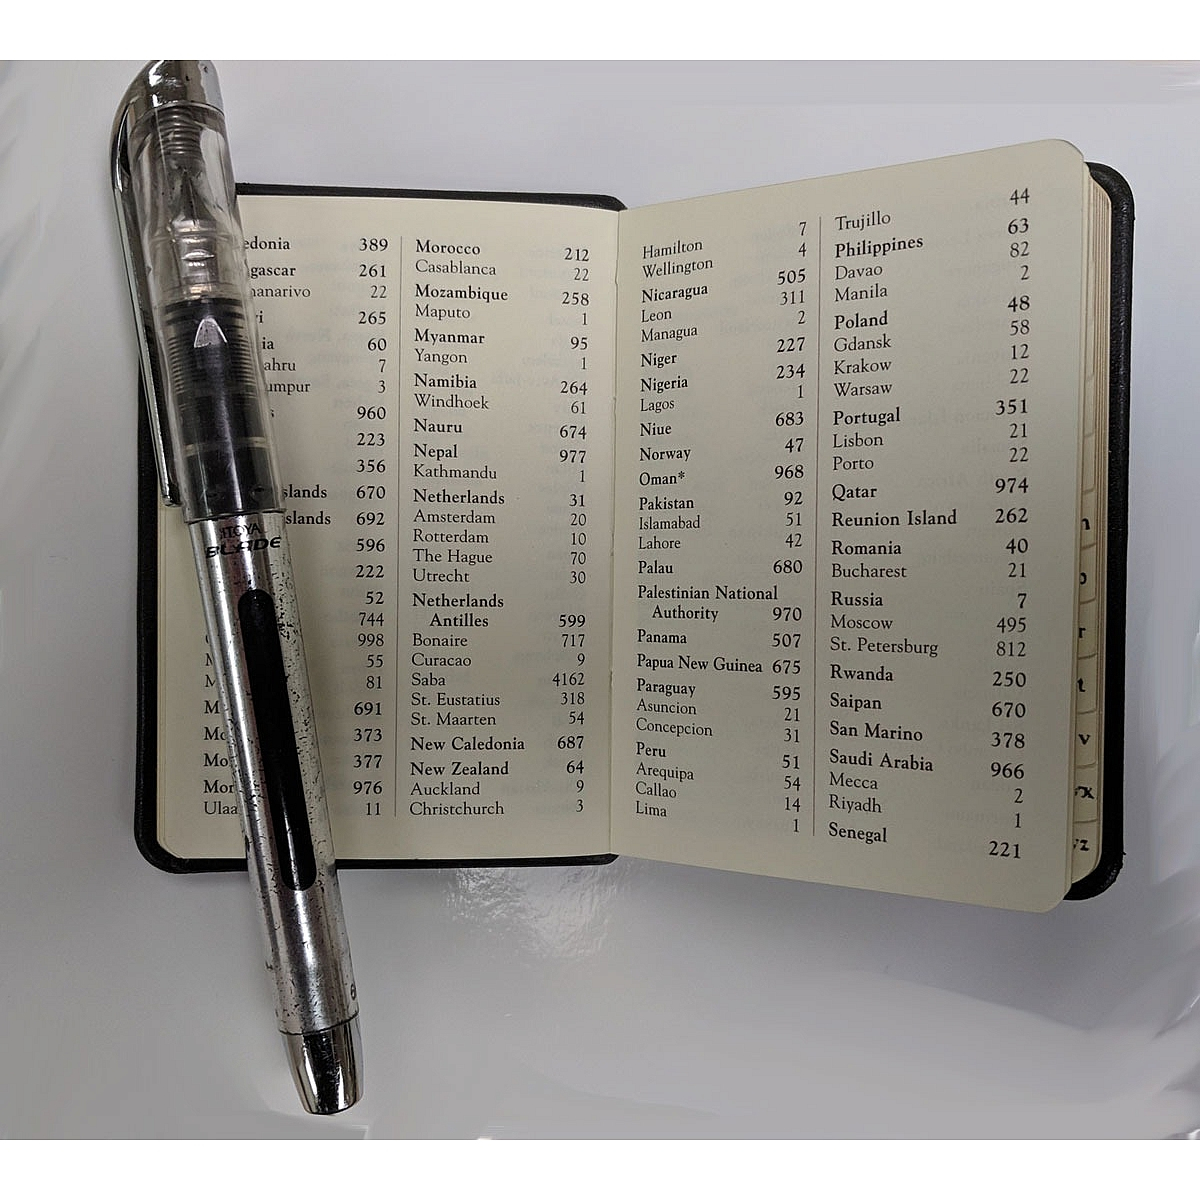 edonia 389
gascar 261
nanarivo 22
vi 265
ia 60
ahru 7
umpur 3
s 960
223
356
slands 670
slands 692
596
222
52
744
998
M 55
M 81
M 691
Mo 373
Mo 377
Mor 976
Ulaa 11
Morocco 212
Casablanca 22
Mozambique 258
Maputo 1
Myanmar 95
Yangon 1
Namibia 264
Windhoek 61
Nauru 674
Nepal 977
Kathmandu 1
Netherlands 31
Amsterdam 20
Rotterdam 10
The Hague 70
Utrecht 30
Netherlands
Antilles 599
Bonaire 717
Curacao 9
Saba 4162
St. Eustatius 318
St. Maarten 54
New Caledonia 687
New Zealand 64
Auckland 9
Christchurch 3
Hamilton 7
Wellington 4
Nicaragua 505
Leon 311
Managua 2
Niger 227
Nigeria 234
Lagos 1
Niue 683
Norway 47
Oman* 968
Pakistan 92
Islamabad 51
Lahore 42
Palau 680
Palestinian National
Authority 970
Panama 507
Papua New Guinea 675
Paraguay 595
Asuncion 21
Concepcion 31
Peru 51
Arequipa 54
Callao 14
Lima 1
Trujillo 44
Philippines 63
Davao 82
Manila 2
Poland 48
Gdansk 58
Krakow 12
Warsaw 22
Portugal 351
Lisbon 21
Porto 22
Qatar 974
Reunion Island 262
Romania 40
Bucharest 21
Russia 7
Moscow 495
St. Petersburg 812
Rwanda 250
Saipan 670
San Marino 378
Saudi Arabia 966
Mecca 2
Riyadh 1
Senegal 221
r
t
v
x
yz
ITOYA
BLADE